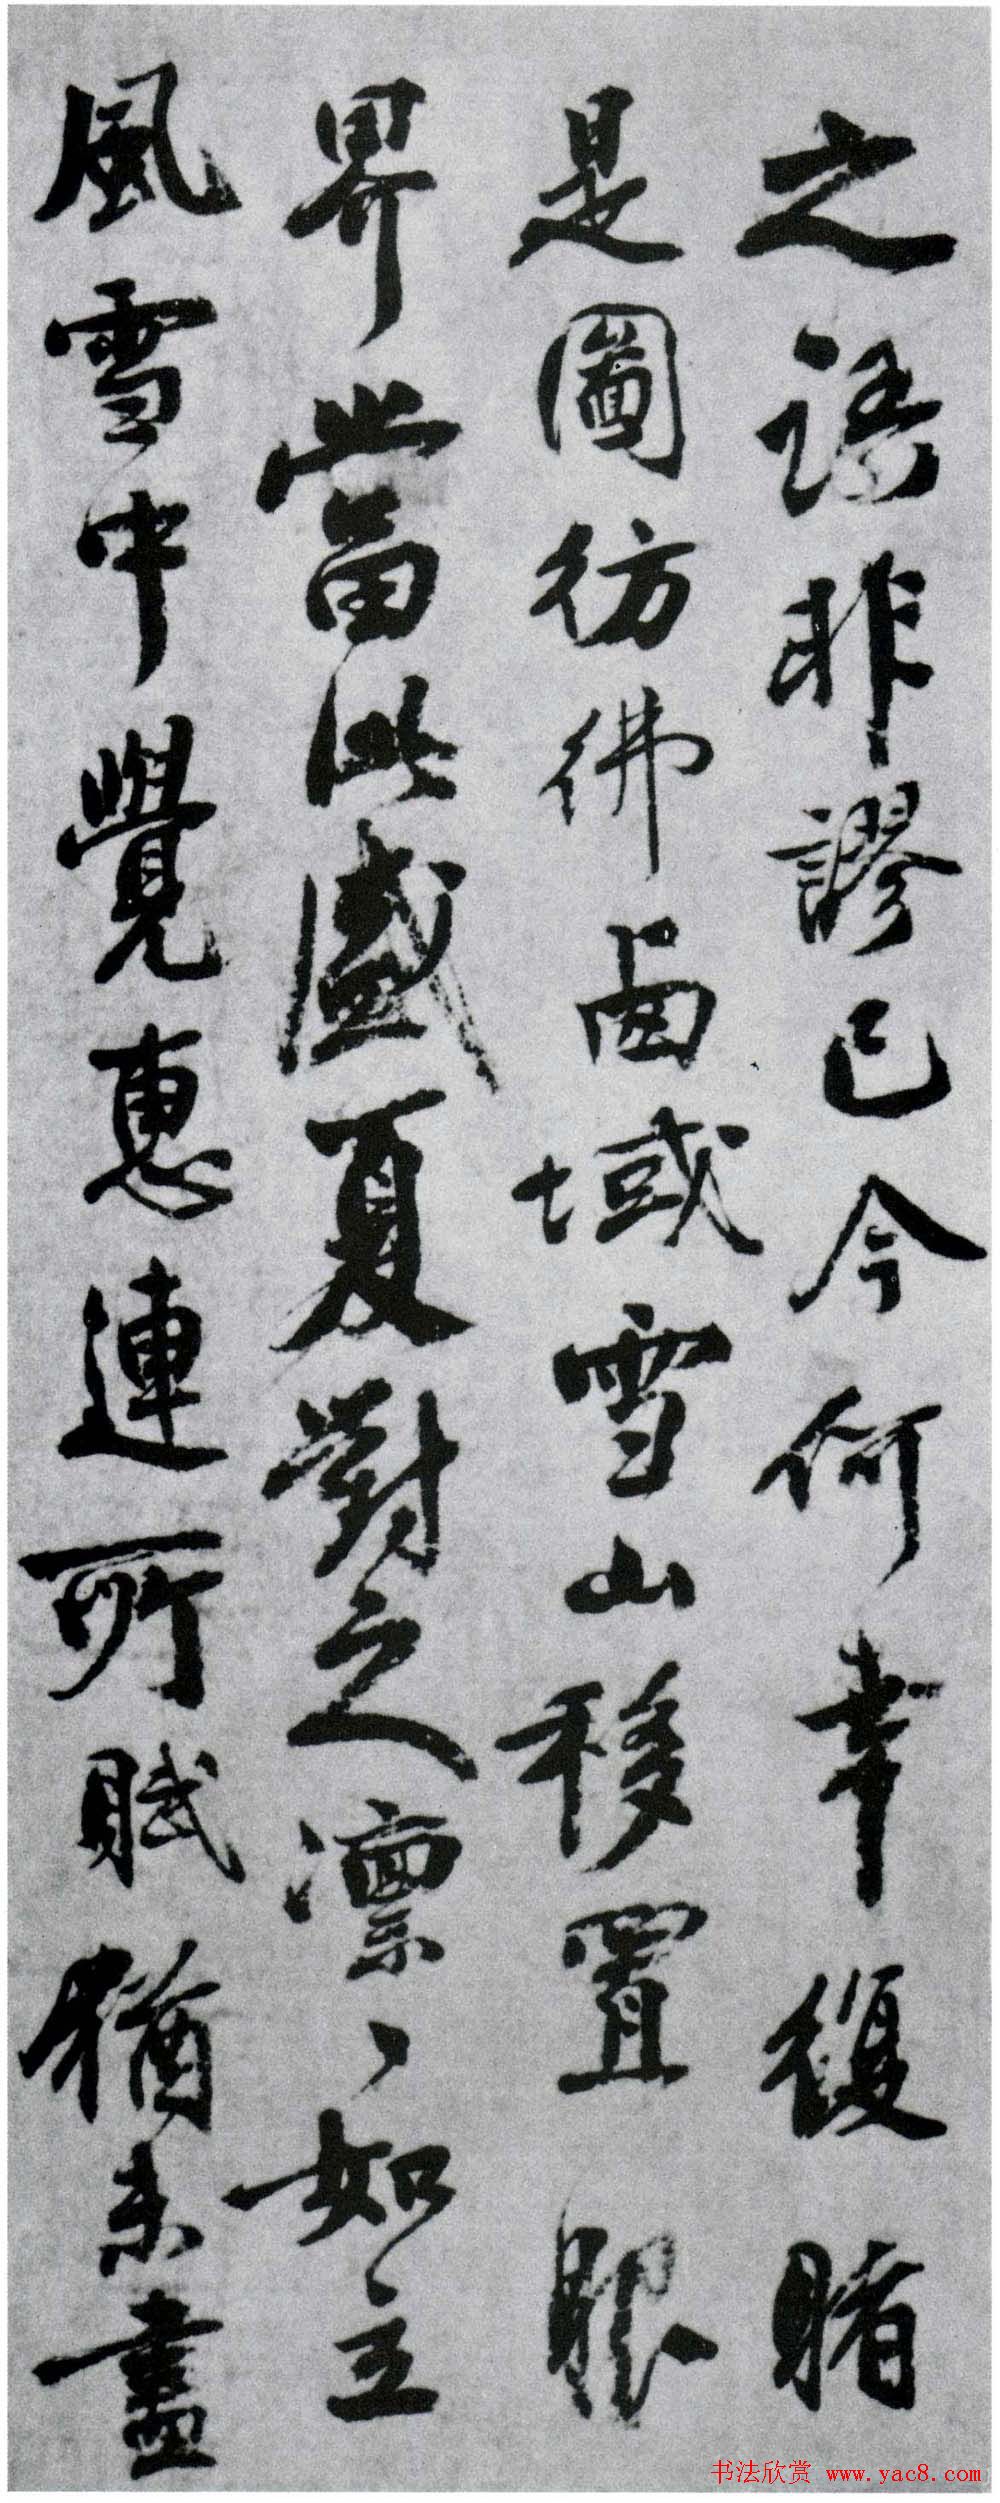 之語非謬已今何幸復睹
是圖彷彿西域雪山移置眼
界當此盛夏對之凛〻如立
風雪中覺惠連所賦猶未盡
书法欣赏 www.yac8.com